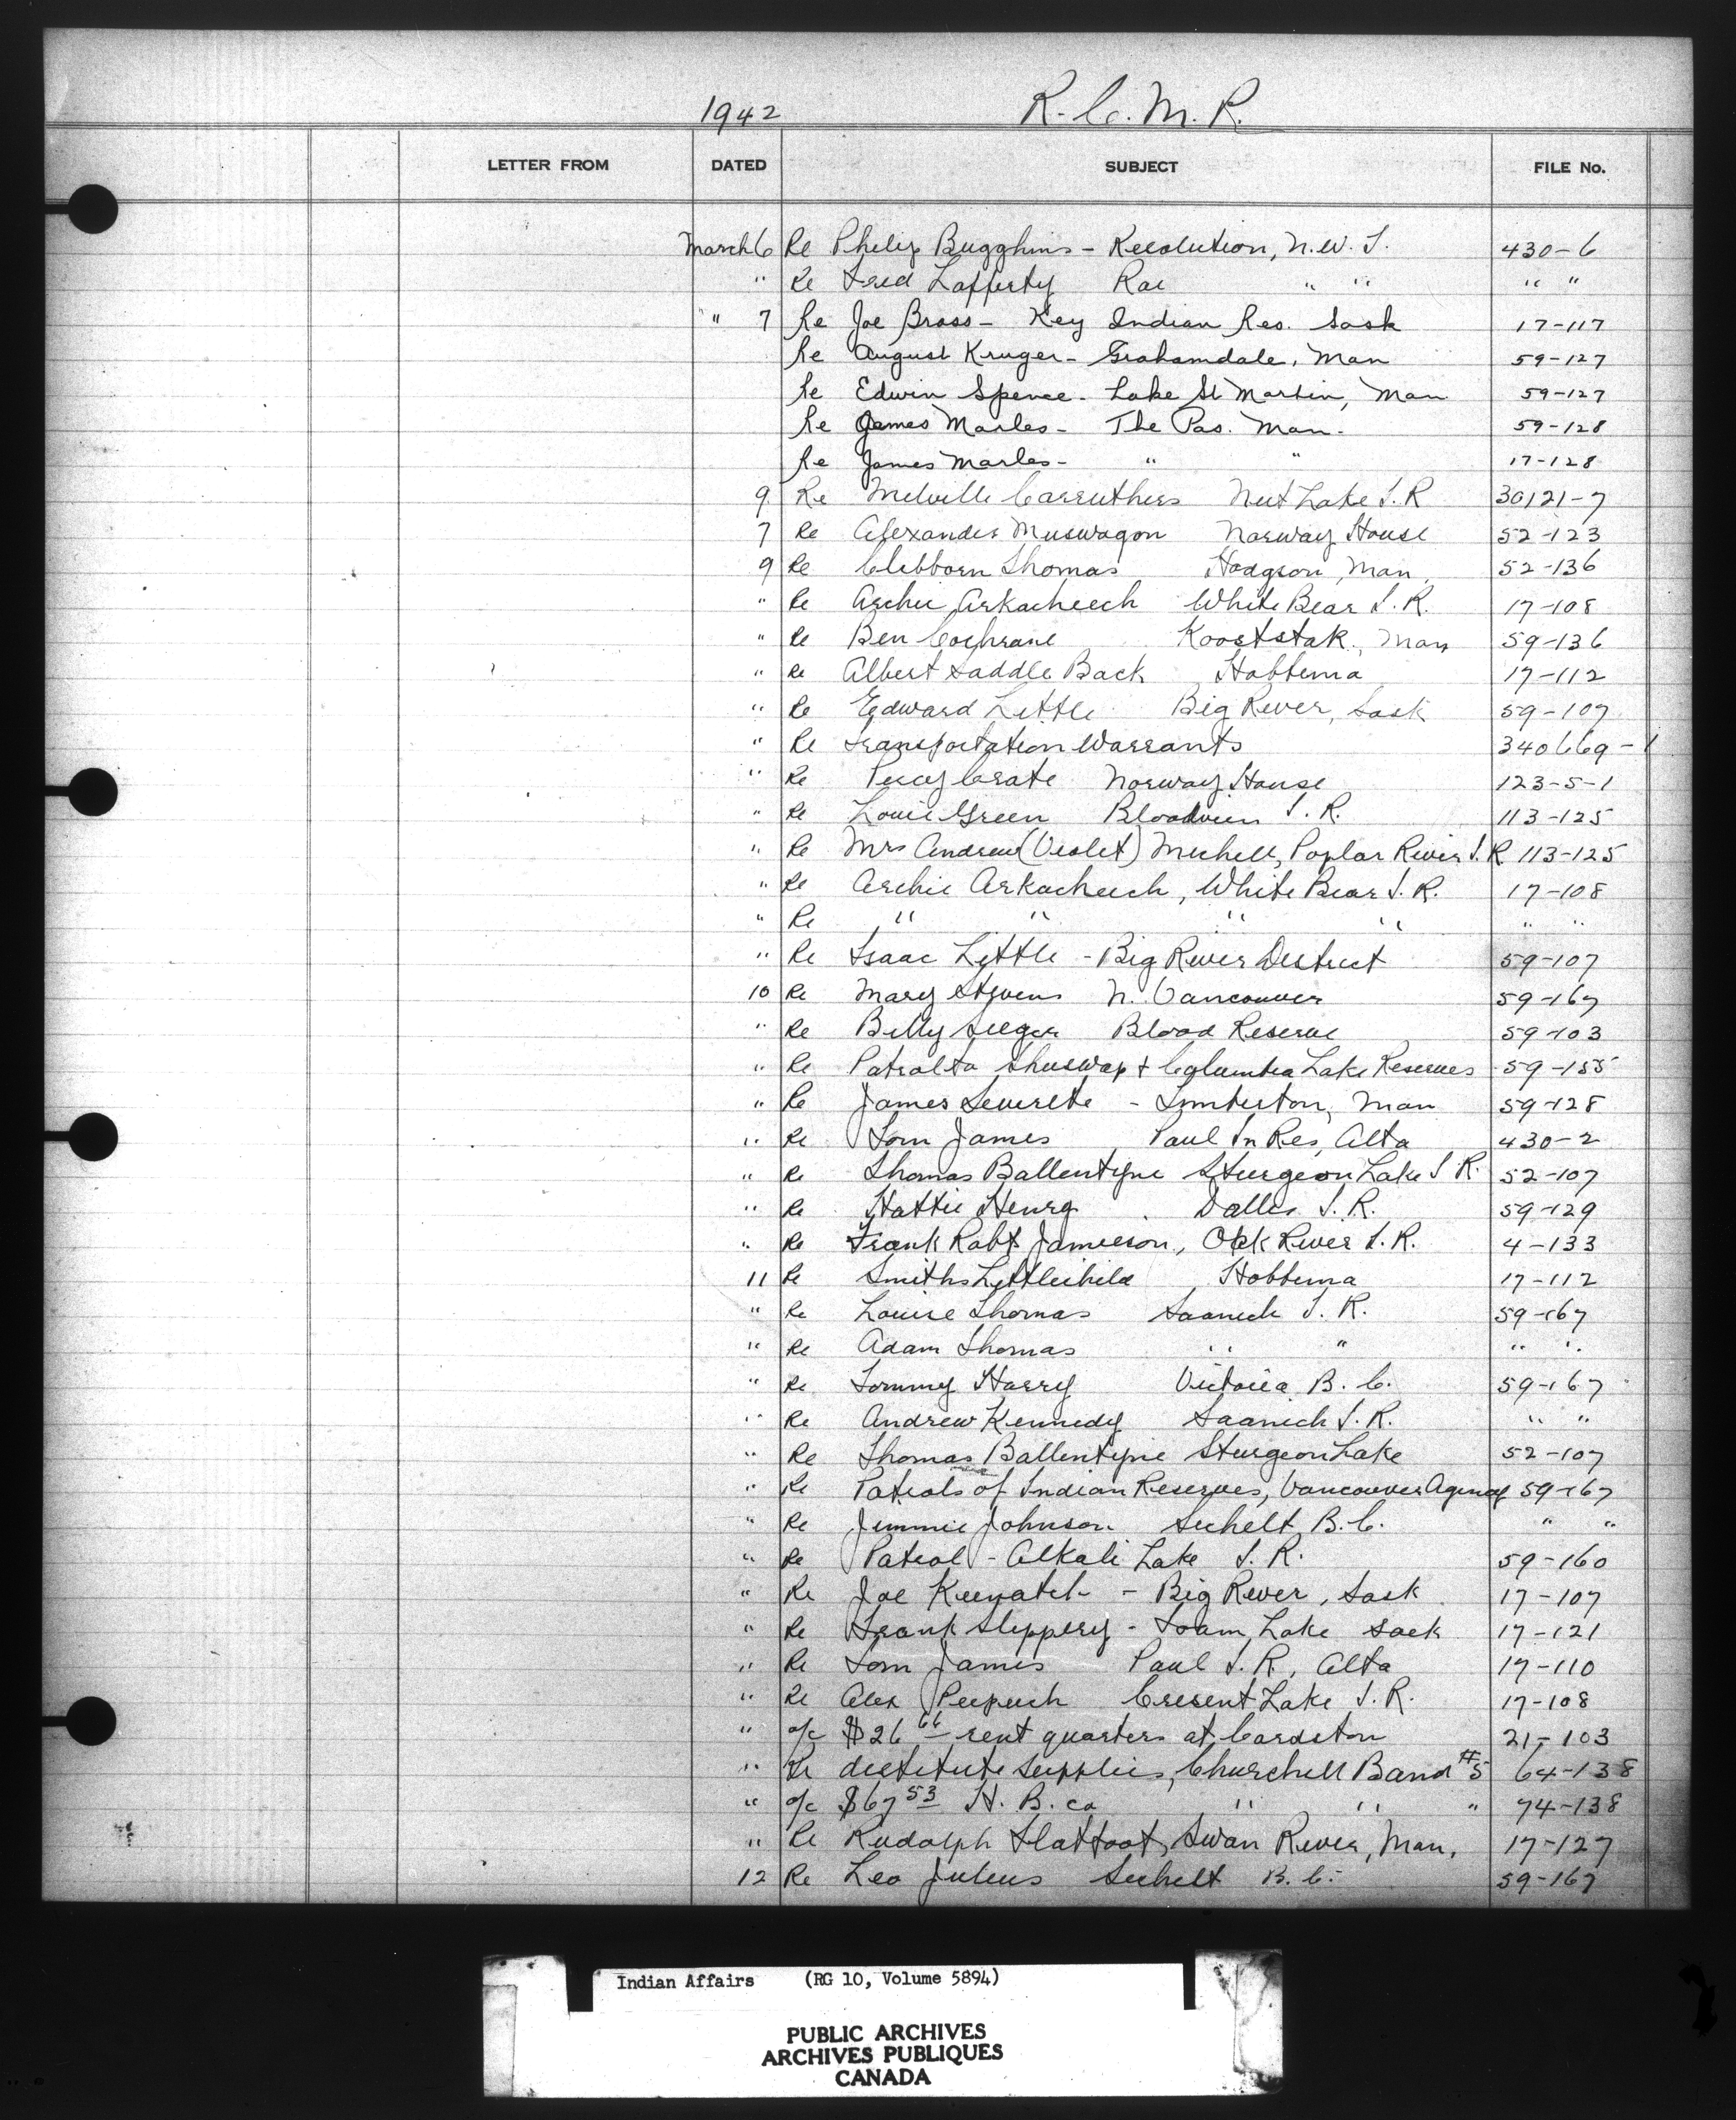 1942 R. C. M. P.
LETTER FROM DATED SUBJECT FILE No.
March 6 Re Philip Bugghins - Resolution, N.W.T. 430-6
" Re Fred Lafferty Rae " " " "
" 7 Re Joe Brass - Key Indian Res. Sask 17-117
Re August Kruger - Grahamdale, Man 59-127
Re Edwin Spence - Lake St Martin, Man 59-127
Re James Marles - The Pas. Man. 59-128
Re James Marles - " " 17-128
9 Re Melville Carruthers Nut Lake I.R 30121-7
7 Re Alexander Muswagon Norway House 52-123
9 Re Clibborn Thomas Hodgson, Man, 52-136
" Re Archie Arkacheech White Bear I.R. 17-108
" Re Ben Cochrane Koostatak, Man 59-136
" Re Albert Saddle Back Hobbema 17-112
" Re Edward Little Big River, Sask 59-107
" Re Transportation Warrants 340669-1
" Re Percy Crate Norway House 123-5-1
" Re Louie Green Bloodvein I.R. 113-125
" Re Mrs Andrew (Violet) Mitchell, Poplar River I.R 113-125
" Re Archie Arkacheech, White Bear I.R. 17-108
" Re " " " " " "
" Re Isaac Little - Big River District 59-107
10 Re Mary Stevens N. Vancouver 59-167
" Re Billy Seeger Blood Reserve 59-103
" Re Patrol to Shuswap + Columbia Lake Reserves 59-155
" Re James Leverette - Man 59-128
" Re Tom James Paul In Res, Alta 430-2
" Re Thomas Ballentyne Sturgeon Lake I R. 52-107
" Re Hattie Henry Dalles I.R. 59-129
" Re Frank Robt Jamieson, Oak River I.R. 4-133
11 Re Smiths Littlechild Hobbema 17-112
" Re Louise Thomas Saanich I.R. 59-167
" Re Adam Thomas " " " "
" Re Tommy Harry Victoria B.C. 59-167
" Re Andrew Kennedy Saanich I.R. " "
" Re Thomas Ballentyne Sturgeon Lake 52-107
" Re Patrols of Indian Reserves, Vancouver Agency 59-167
" Re Jimmie Johnson Sechelt B.C. " "
" Re Patrol - Alkali Lake I.R. 59-160
" Re Joe Keenatch - Big River, Sask 17-107
" Re Frank Slippery - Foam Lake Sask 17-121
" Re Tom James Paul I.R, Alta 17-110
" Re Alex Peepeech Cresent Lake I.R. 17-108
" a/c $26 66 rent quarters at Cardston 21-103
" Re destitute supplies, Churchill Band #5 64-138
" a/c $67 53 H. B. co " " " 74-138
" Re Rudolph Flatfoot, Swan River, Man, 17-127
12 Re Leo Julius Sechelt B.C. 59-167
Indian Affairs (RG 10, Volume 5894)
PUBLIC ARCHIVES
ARCHIVES PUBLIQUES
CANADA